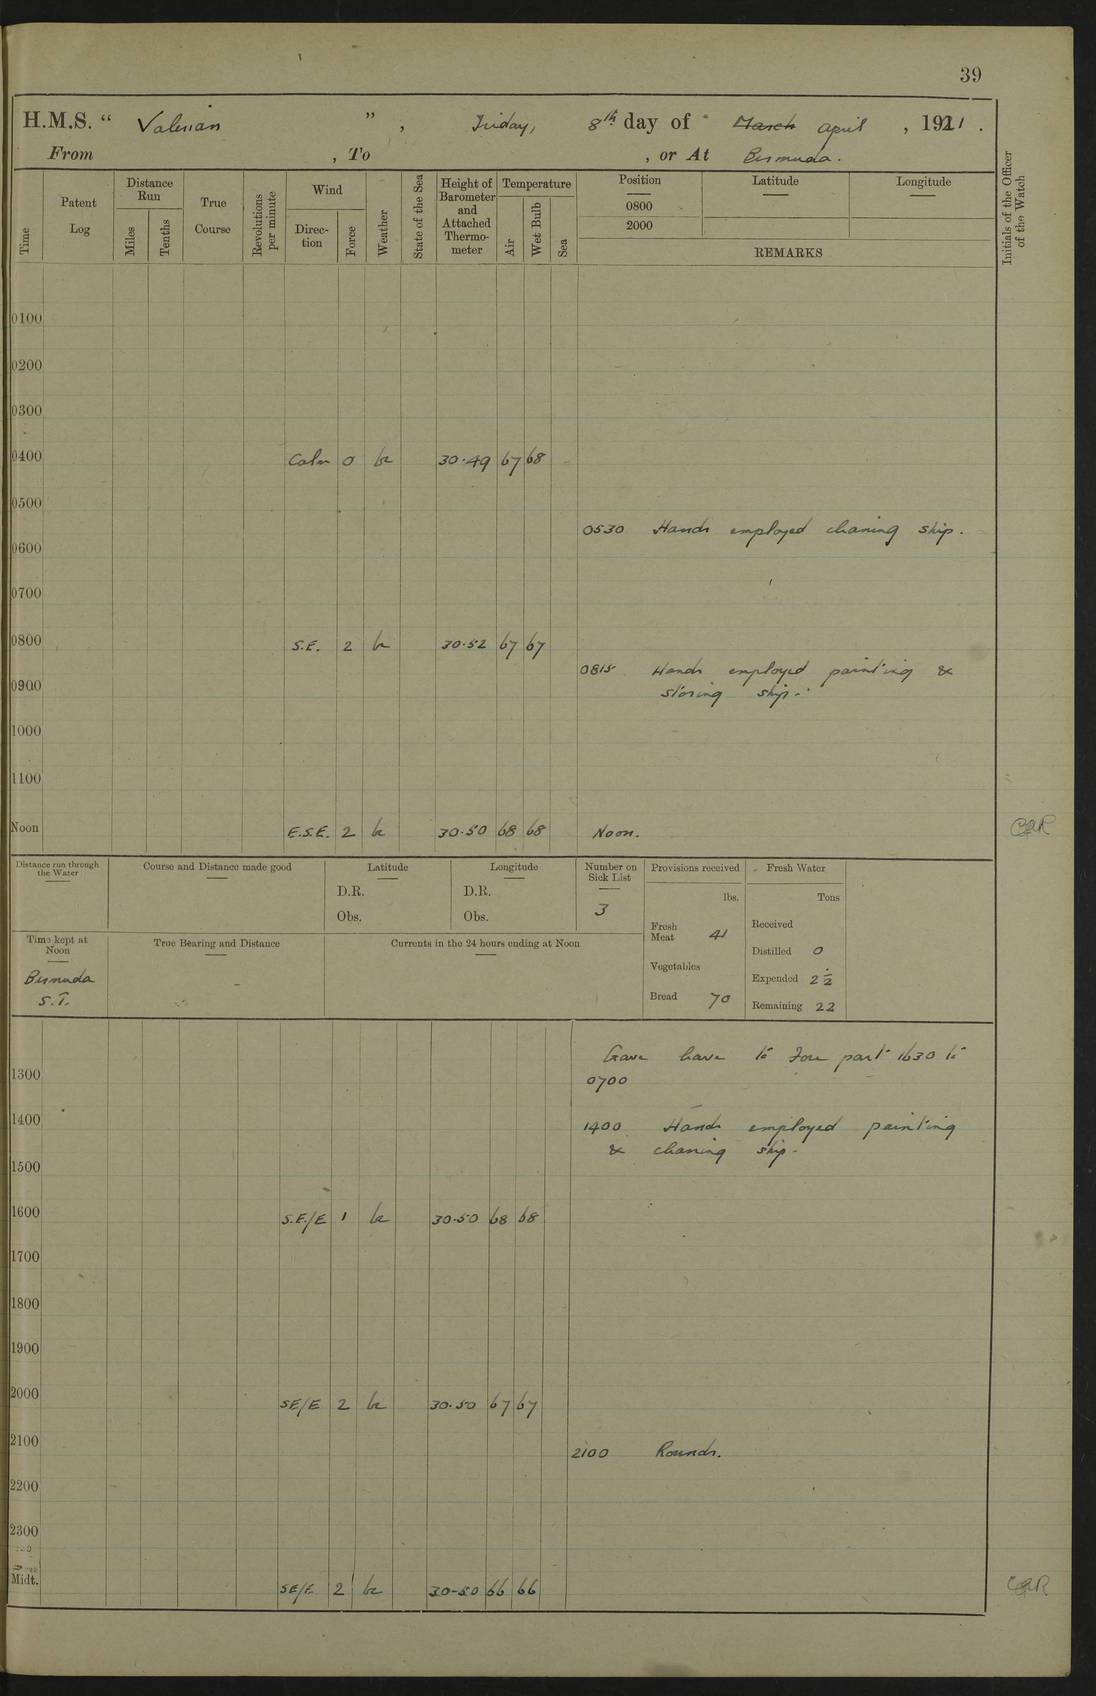 39
H.M.S. “ Valerian ” , Friday, 8th day of March April , 1921 .
From , To , or At Bermuda.
Time
Patent Log
Distance Run
Miles
Tenths
True Course
Revolutions per minute
Wind
Direc-tion
Force
Weather
State of the Sea
Height of Barometer and Attached Thermo-meter
Temperature
Air
Wet Bulb
Sea
Position
0800
2000
Latitude
Longitude
REMARKS
Initials of the Officer of the Watch
0100
0200
0300
0400 Calm 0 bc 30.49 67 68
0500
0530 Hands employed cleaning ship.
0600
0700
0800 S.E. 2 bc 30.52 67 67
0815 Hands employed painting &
storing ship.
0900
1000
1100
Noon E.S.E. 2 bc 30.50 68 68 Noon.
Distance run through the Water
Course and Distance made good
Latitude
D.R.
Obs.
Longitude
D.R.
Obs.
Number on Sick List
3
Provisions received
lbs.
Fresh Meat 41
Vegetables
Bread 70
Fresh Water
Tons
Received
Distilled 0
Expended 2½
Remaining 22
Time kept at Noon
Bermuda
S.T.
True Bearing and Distance
Currents in the 24 hours ending at Noon
Gave leave to Fore part 1630 to
0700
1300
1400
1400 Hands employed painting
& cleaning ship.
1500
1600 S.E./E 1 bc 30.50 68 68
1700
1800
1900
2000 SE/E 2 bc 30.50 67 67
2100
2100 Rounds.
2200
2300
Midt. SE/E 2 bc 30.50 66 66